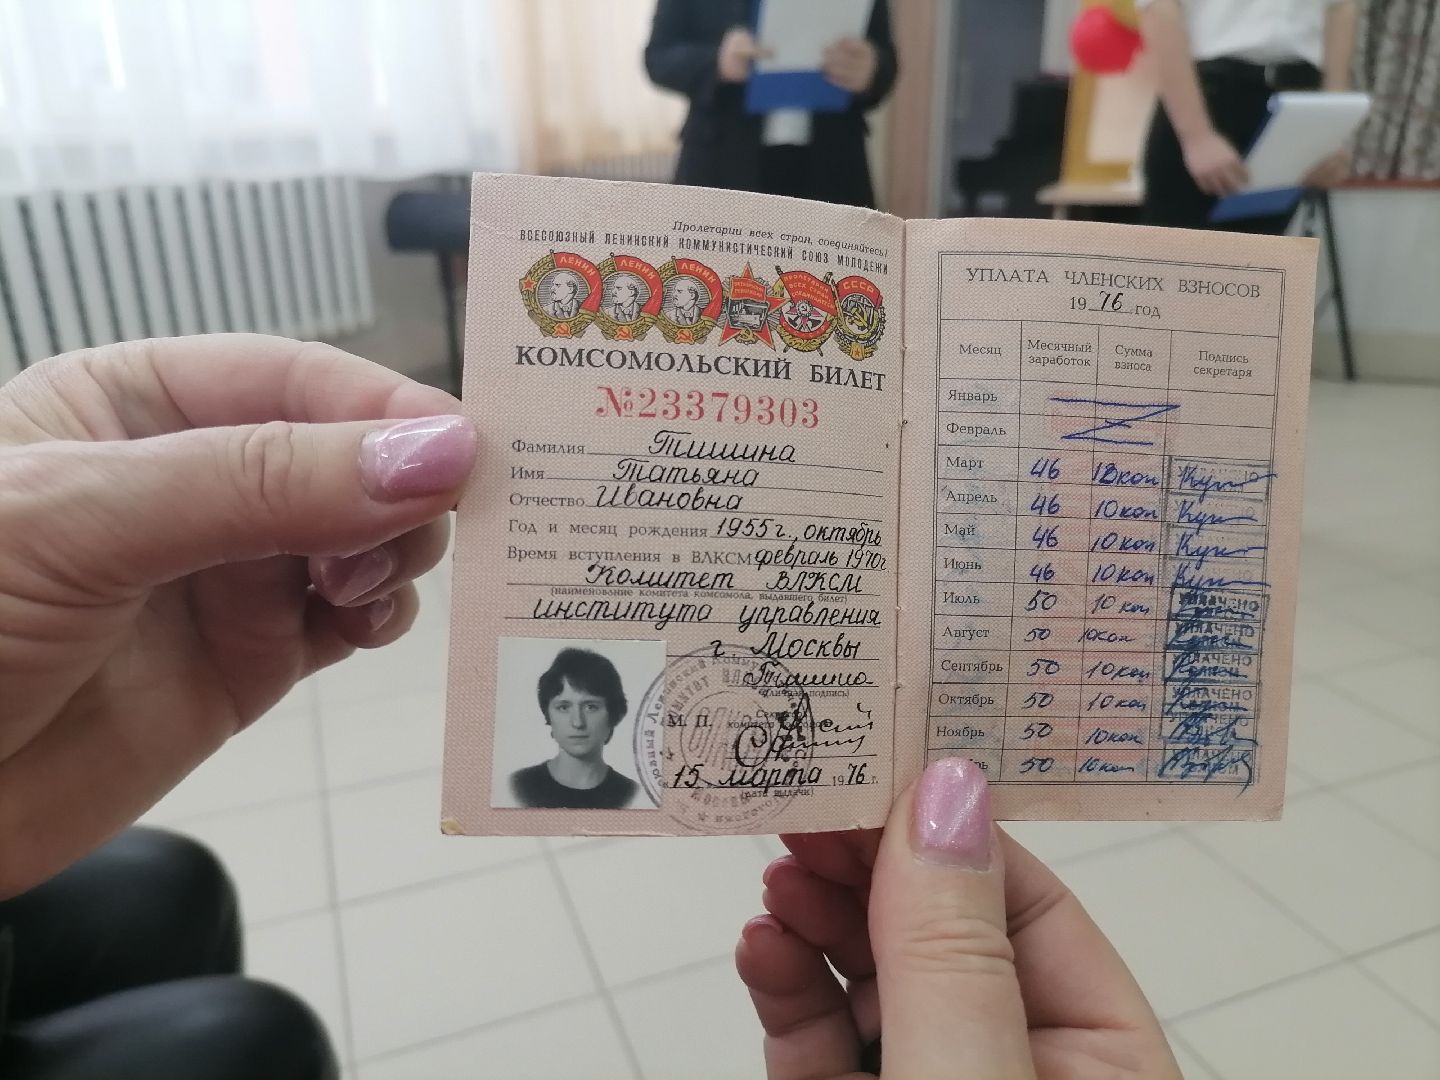 Пролетарии всех стран, соединяйтесь!
ВСЕСОЮЗНЫЙ ЛЕНИНСКИЙ КОММУНИСТИЧЕСКИЙ СОЮЗ МОЛОДЕЖИ
ЛЕНИН ЛЕНИН ЛЕНИН СССР
КОМСОМОЛЬСКИЙ БИЛЕТ
№23379303
Фамилия Тишина
Имя Татьяна
Отчество Ивановна
Год и месяц рождения 1955 г., октябрь
Время вступления в ВЛКСМ февраль 1970г.
Комитет ВЛКСМ
(наименование комитета комсомола, выдавшего билет)
института управления
г. Москвы
Тишина
(личная подпись)
М. П.
15 марта 1976 г.
(дата выдачи)
УПЛАТА ЧЛЕНСКИХ ВЗНОСОВ
1976 год
Месяц Месячный заработок Сумма взноса Подпись секретаря
Январь
Февраль
Март 46 10 коп УПЛАЧЕНО
Апрель 46 10 коп
Май 46 10 коп
Июнь 46 10 коп
Июль 50 10 коп УПЛАЧЕНО
Август 50 10 коп УПЛАЧЕНО
Сентябрь 50 10 коп УПЛАЧЕНО
Октябрь 50 10 коп УПЛАЧЕНО
Ноябрь 50 10 коп УПЛАЧЕНО
50 10 коп УПЛАЧЕНО